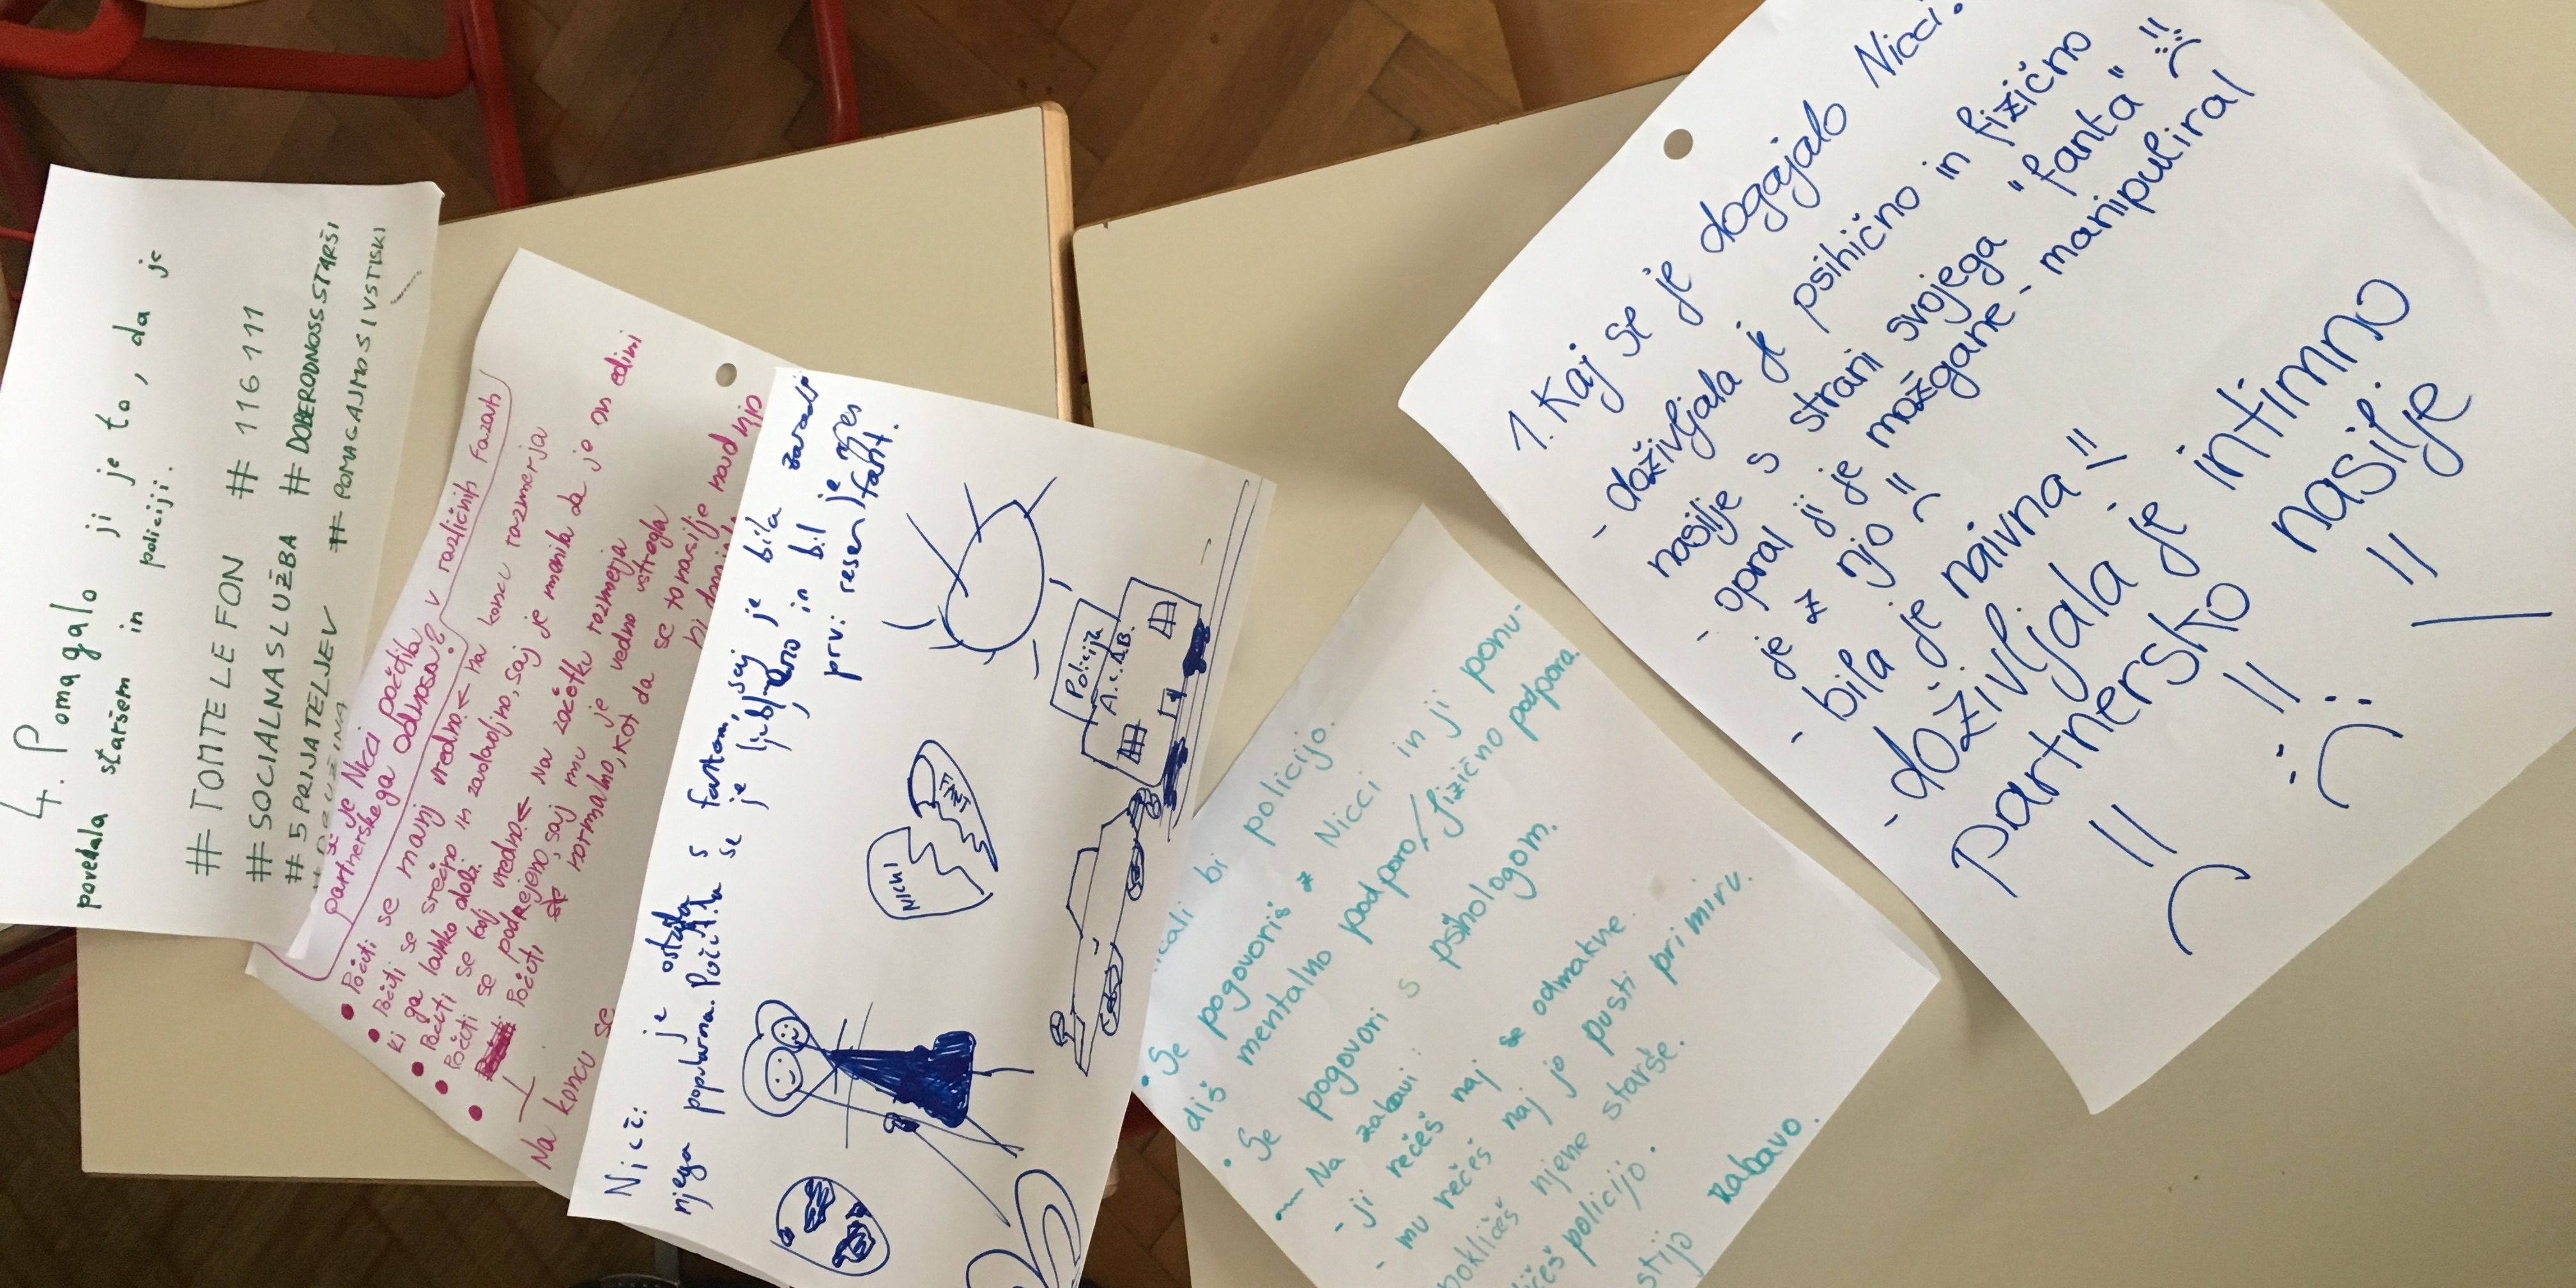 4. Pomagalo ji je to, da je
povedala staršem in policiji.
# TOMTELEFON # 116 111
# SOCIALNASLUŽBA # DOBERODNOSSSTARŠI
# 5 PRIJATELJEV # POMAGAJMOSIVSTISKI
se je Nicci počutila v različnih fazah
partnerskega odnosa?
• Počuti se manj vredno ← na koncu razmerja
• Počuti se srečno in zadovoljno, saj je mnenila da je on edini
ki ga lahko dobi.
• Počuti se bolj vredno ← Na začetku razmerja
• Počuti se podrejeno, saj mu je vedno ustregla
• Počuti se normalno, kot da se to nasilje nad njo
Na koncu se
Nicci: je ostala s fantom, saj je bila zaradi
njega popularna. Počutila se je ljubljeno in bil je njen
prvi resen fant.
NICKI
Policija
A.C.A.B.
bi policijo.
• Se pogovoriš z Nicci in ji ponu-
diš mentalno podporo/fizično podpora.
• Se pogovori s psihologom.
— Na zabavi:
- ji rečeš naj se odmakne.
- mu rečeš naj jo pusti pri miru.
pokličeš njene starše.
policijo.
zabavo.
1. Kaj se je dogajalo Nicci?
- doživljala je psihično in fizično
nasilje s strani svojega "fanta"
- opral ji je možgane - manipuliral
je z njo
- bila je naivna
- doživljala je intimno
partnersko nasilje